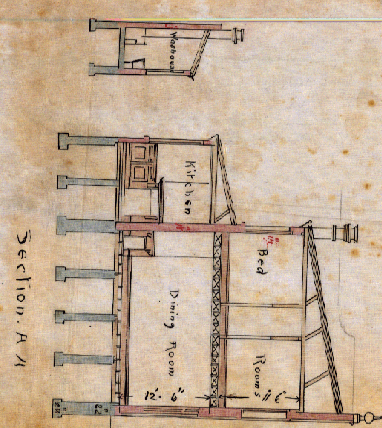 Washouse
Kitchen
Bed
Rooms
Dining Room
12'. 6"
Section. A.A